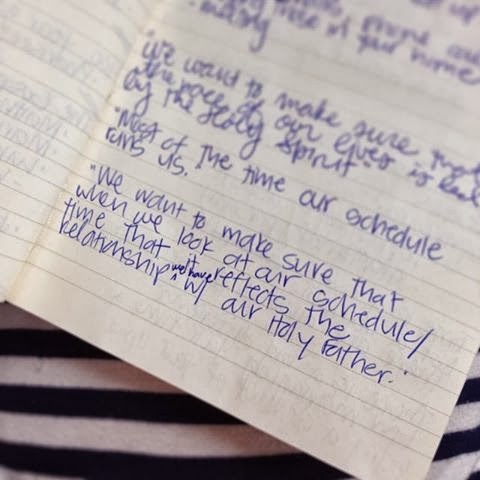 rise in your home
"We want to make sure that
the pace of our lives is lead
by the Holy Spirit"
"Most of the time our schedule
runs us.
"We want to make sure that
when we look at our schedule/
time that it reflects the
relationship we have w/
our Holy Father."